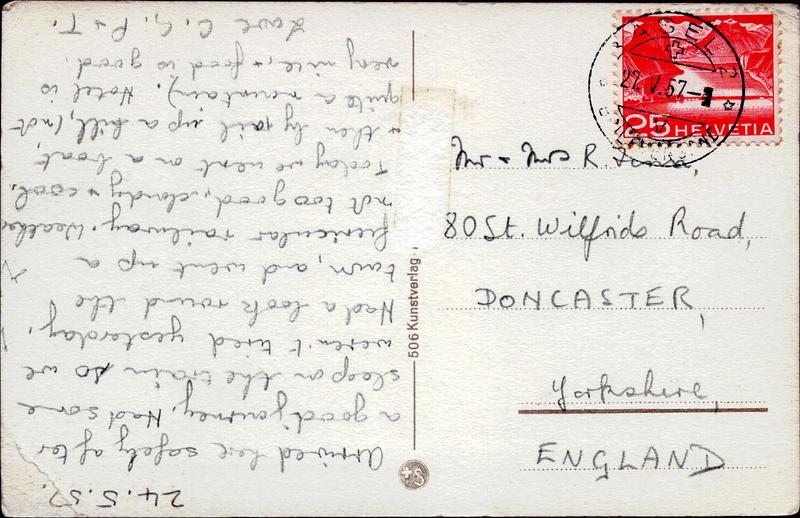 24.5.57.
Arrived here safely after
a good journey. Had some
sleep on the train so we
weren't tired yesterday.
Had a look round the
town, and went up a
funicular railway. Weather
not too good, cloudy & cool.
Today we went on a boat
& then by rail up a hill, (not
quite a mountain). Hotel is
very nice, & food is good.
Love C. G. P & T.
506 Kunstverlag
BASEL 2
27.V.57-
25 HELVETIA
Mr & Mrs R.
80 St. Wilfrids Road,
DONCASTER,
Yorkshire,
ENGLAND